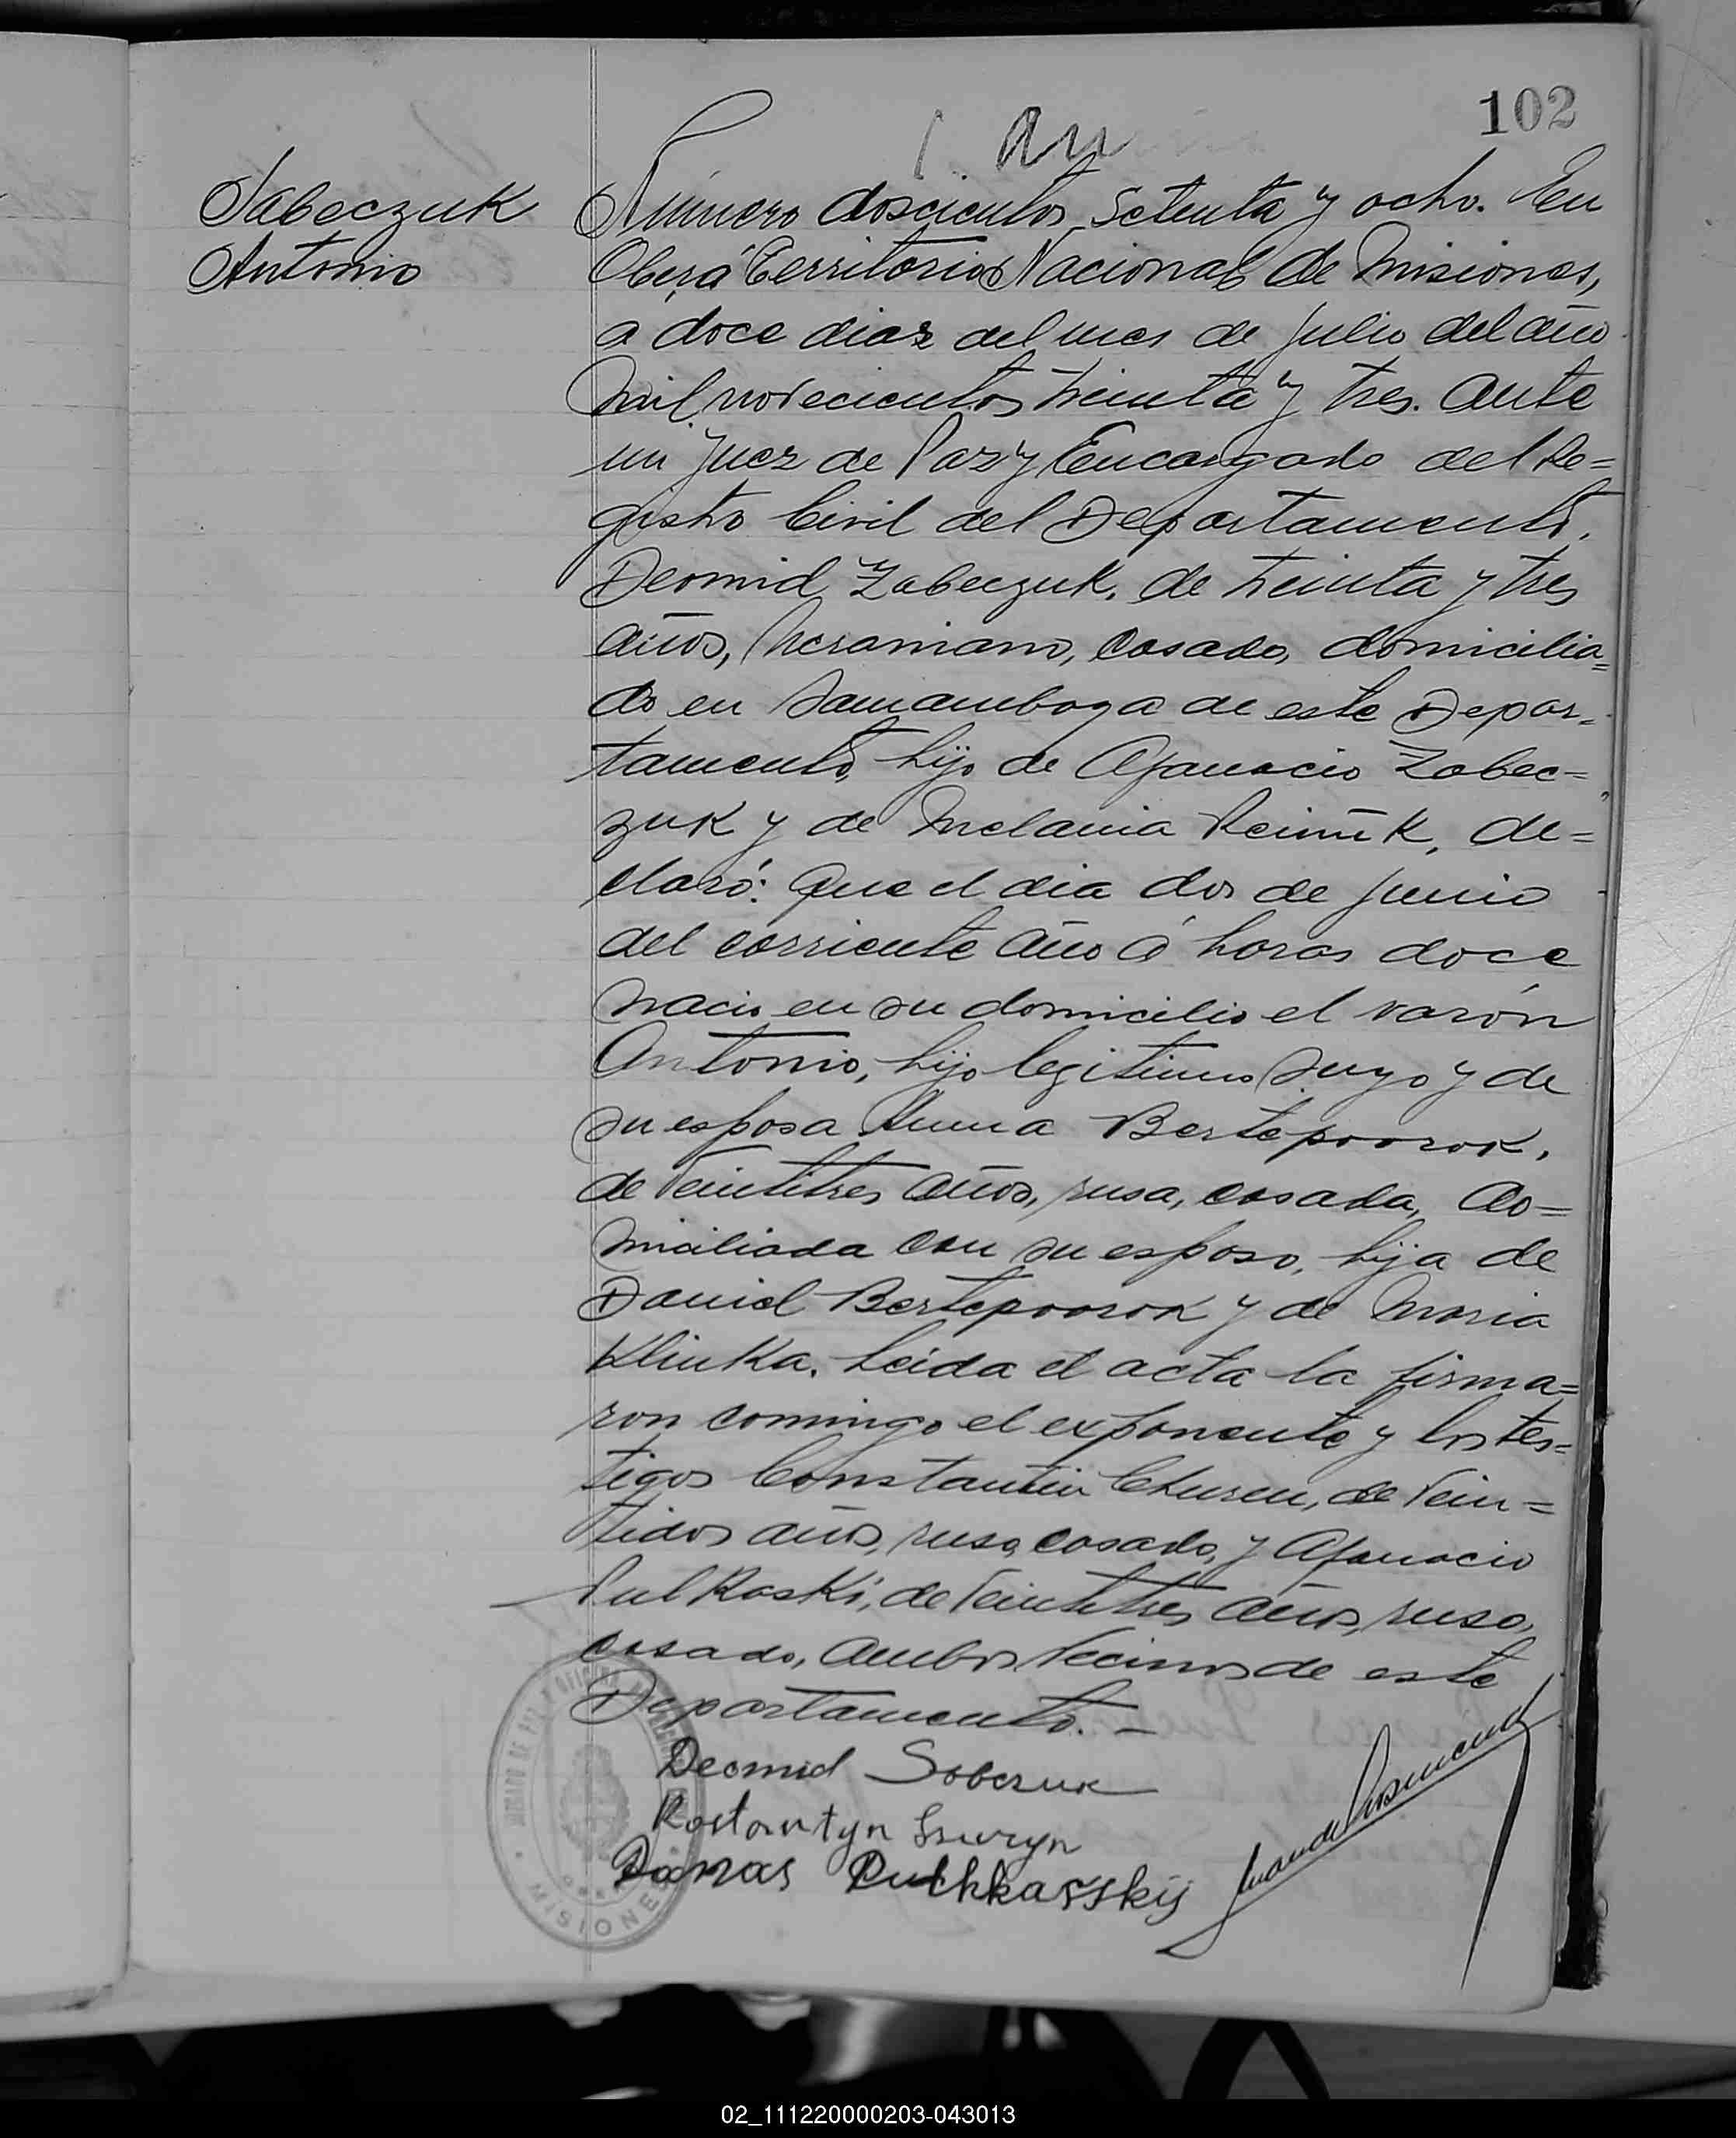 102
Sabeczuk
Antonio
Número doscientos setenta y ocho. En
Oberá Territorio Nacional de Misiones,
a doce dias del mes de Julio del año
mil novecientos treinta y tres. Ante
mi Juez de Paz y Encargado del Re=
gistro Civil del Departamento,
Deomid Zabeczuk, de treinta y tres
años, Ucraniano, casado, domicilia=
do en Samambaya de este Depar=
tamento, hijo de Afanacio Zabec=
zuk y de Melania, de=
claró: Que el dia dos de Junio
del corriente año á horas doce
nació en su domicilio el varón
Antonio, hijo legitimo suyo y de
su esposa Anna Bertepoorok,
de veintitres años, rusa, casada, do=
miciliada con su esposo, hija de
Daniel Bertepoorok y de Maria
Klinka. Leida el acta la firma=
ron conmigo el exponente y los tes=
tigos Constantin Churen, de vein=
tidos años, ruso, casado, y Afanacio
Pulkaski, de veintitres años, ruso,
casado, ambos vecinos de este
Departamento. -
Deomid Sobczuk
Kostantyn Szuryn
Panas Pulhkasskij
MISIONES
02_111220000203-043013